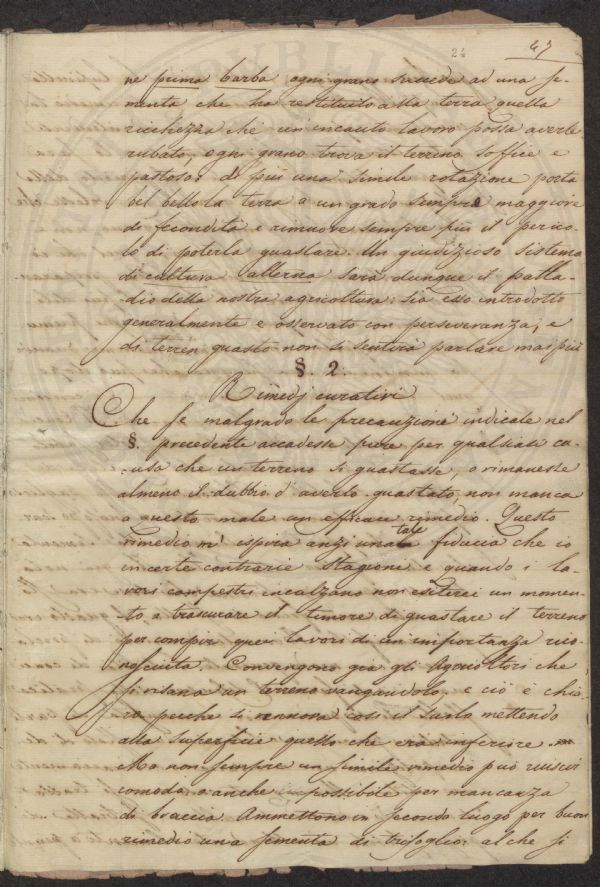 24
47
ne prima barba ogni grano succede ad una se-
menta che ha restituito alla terra quella
ricchezza che un incauto lavoro possa averle
rubato, ogni grano trova il terreno soffice e
pastoso: di più una simile rotazione porta
bel bello la terra a un grado sempre maggiore
di fecondità e rimuove sempre più il perico-
lo di poterla guastare. Un giudizioso sistema
di cultura sarà dunque il palla-
dio della nostra agricoltura: sia esso introdotto
generalmente e osservato con perseveranza, e
di terren guasto non si sentirà parlare mai più
§. 2.
Rimedj curativi
Che se malgrado le precauzione indicate nel
§. precedente accadesse pure per qualsiasi ca-
usa che un terreno si guastasse, o rimanesse
almeno il dubbio d'averlo guastato, non manca
a questo male un efficace rimedio. Questo
rimedio m'espira anzi una tale fiducia che io
in certe contrarie stagioni e quando i la-
vori campestri incalzano non esiterei un momen-
to a trascurare il timore di guastare il terreno
per compir quei lavori di un importanza rico-
nosciuta. Convengono già gli Agricoltori che
si risana un terreno vangandolo, e ciò è chia-
ro perche si rinnova così il suolo mettendo
alla superficie quello che era inferiore.
Ma non sempre un simile rimedio può riuscir
comodo, o anche impossibile per mancanza
di braccia. Ammettono in secondo luogo per buon
rimedio una sementa di trifoglio: al che si